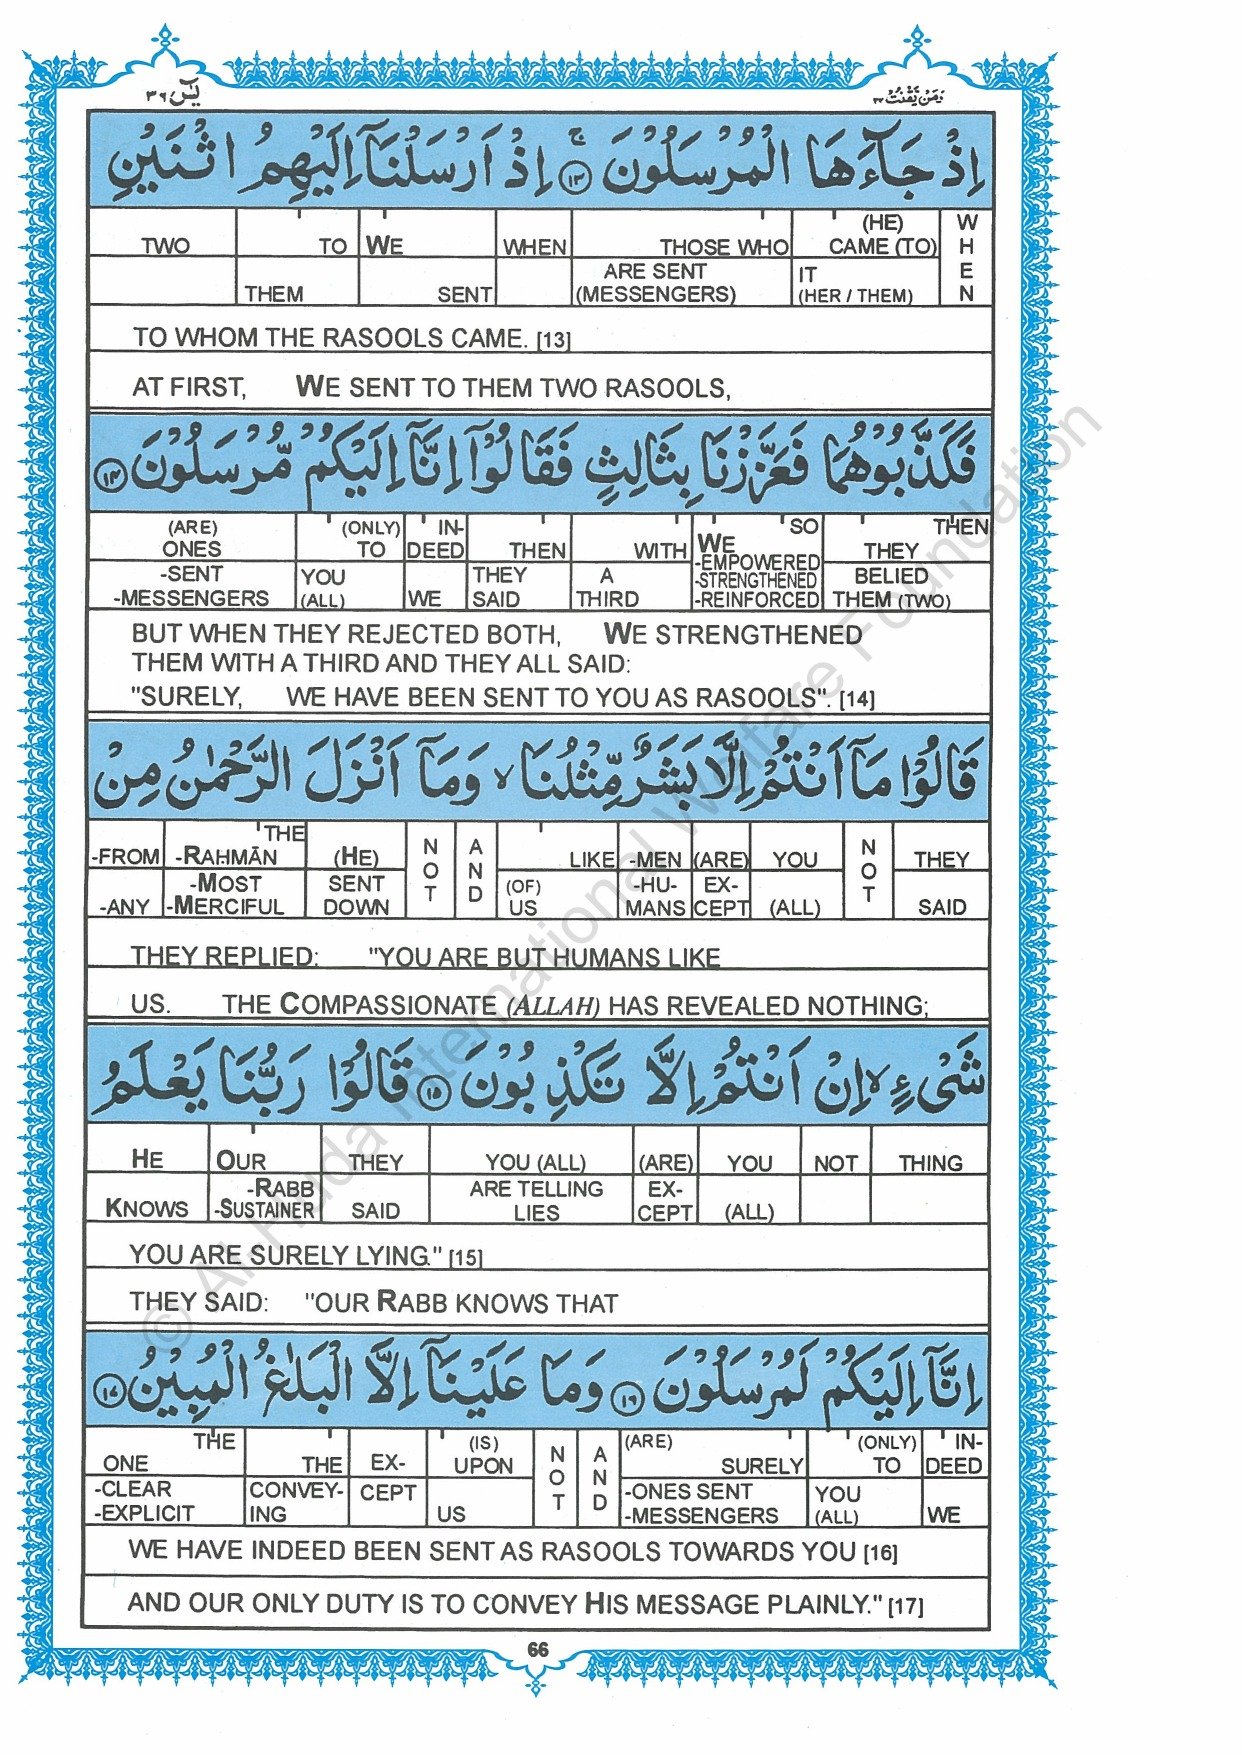 يٰسٓ ٣٦
وَمَنْ يَّقْنُتْ ٢٢
اِذْ جَآءَهَا الْمُرْسَلُوْنَ ۚ ١٣ اِذْ اَرْسَلْنَآ اِلَيْهِمُ اثْنَيْنِ
TWO TO WE WHEN THOSE WHO (HE) CAME (TO) WHEN
THEM SENT ARE SENT (MESSENGERS) IT (HER / THEM)
TO WHOM THE RASOOLS CAME. [13]
AT FIRST, WE SENT TO THEM TWO RASOOLS,
فَكَذَّبُوْهُمَا فَعَزَّزْنَا بِثَالِثٍ فَقَالُوْٓا اِنَّآ اِلَيْكُمْ مُّرْسَلُوْنَ ١٤
(ARE) ONES (ONLY) TO IN-DEED THEN WITH WE SO THEN THEY
-SENT -MESSENGERS YOU (ALL) WE THEY SAID A THIRD -EMPOWERED -STRENGTHENED -REINFORCED BELIED THEM (TWO)
BUT WHEN THEY REJECTED BOTH, WE STRENGTHENED
THEM WITH A THIRD AND THEY ALL SAID:
"SURELY, WE HAVE BEEN SENT TO YOU AS RASOOLS". [14]
قَالُوْا مَآ اَنْتُمْ اِلَّا بَشَرٌ مِّثْلُنَا ۙ وَمَآ اَنْزَلَ الرَّحْمٰنُ مِنْ
-FROM THE -RAHMĀN (HE) NOT AND LIKE -MEN (ARE) YOU NOT THEY
-ANY -MOST -MERCIFUL SENT DOWN (OF) US -HU-MANS EX-CEPT (ALL) SAID
THEY REPLIED: "YOU ARE BUT HUMANS LIKE
US. THE COMPASSIONATE (ALLAH) HAS REVEALED NOTHING;
شَيْءٍ ۙ اِنْ اَنْتُمْ اِلَّا تَكْذِبُوْنَ ١٥ قَالُوْا رَبُّنَا يَعْلَمُ
HE OUR THEY YOU (ALL) (ARE) YOU NOT THING
KNOWS -RABB -SUSTAINER SAID ARE TELLING LIES EX-CEPT (ALL)
YOU ARE SURELY LYING." [15]
THEY SAID: "OUR RABB KNOWS THAT
اِنَّآ اِلَيْكُمْ لَمُرْسَلُوْنَ ١٦ وَمَا عَلَيْنَآ اِلَّا الْبَلٰغُ الْمُبِيْنُ ١٧
THE ONE THE EX- (IS) UPON NOT AND (ARE) SURELY (ONLY) TO IN-DEED
-CLEAR -EXPLICIT CONVEY-ING CEPT US -ONES SENT -MESSENGERS YOU (ALL) WE
WE HAVE INDEED BEEN SENT AS RASOOLS TOWARDS YOU [16]
AND OUR ONLY DUTY IS TO CONVEY HIS MESSAGE PLAINLY." [17]
66
© Al-Huda International Welfare Foundation